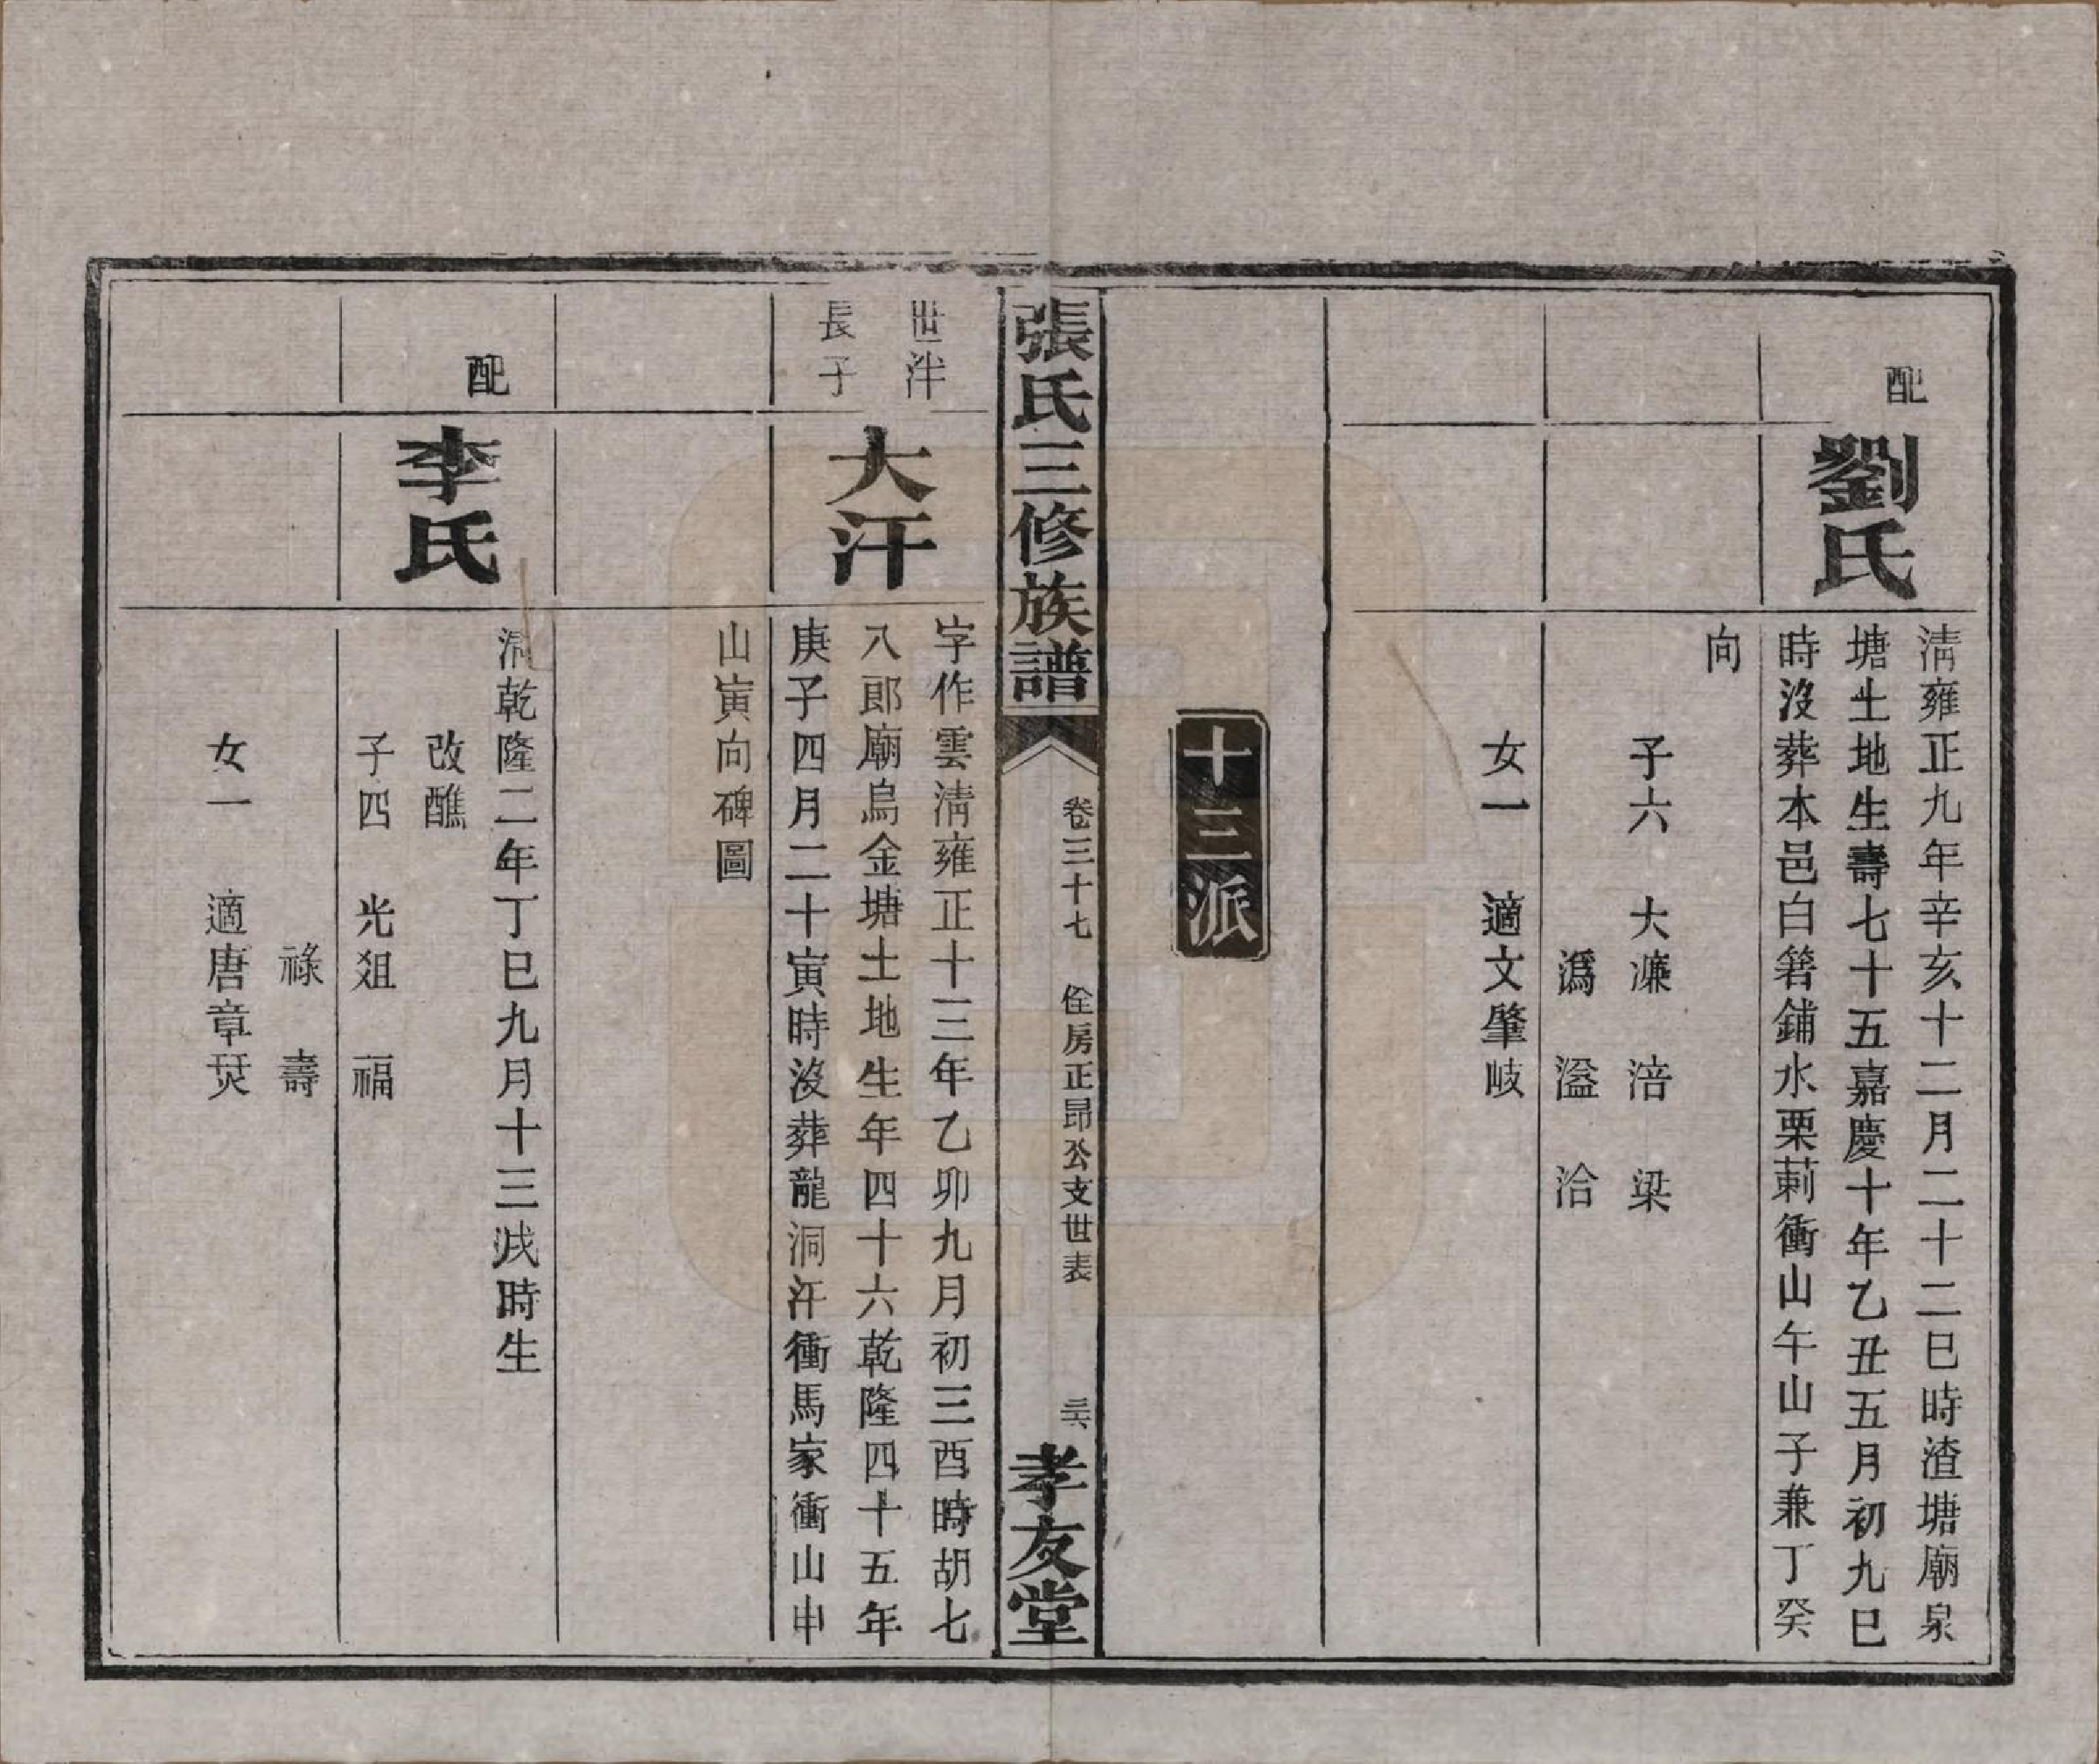 配
劉氏
淸雍正九年辛亥十二月二十二巳時渣塘廟泉
塘土地生壽七十五嘉慶十年乙丑五月初九巳
時沒葬本邑白箬鋪水栗莿衝山午山子兼丁癸
向
子六　大濂　涪　梁
潙　溢　洽
女一　適文肇岐
十三派
張氏三修族譜
卷三十七　佺房正昂公支世表
孝友堂
世泮
長子
大汗
字作雲淸雍正十三年乙卯九月初三酉時胡七
八郎廟烏金塘土地生年四十六乾隆四十五年
庚子四月二十寅時沒葬龍洞汗衝馬家衝山申
山寅向碑圖
配
李氏
淸乾隆二年丁巳九月十三戌時生
改醮
子四　光爼　福
祿　壽
女一　適唐章焋